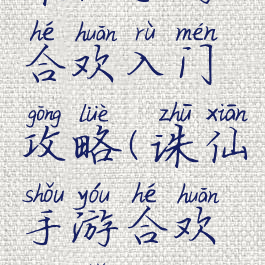 hé huān rù mén
合欢入门
gōng lüè zhū xiān
攻略(诛仙
shǒu yóu hé huān
手游合欢